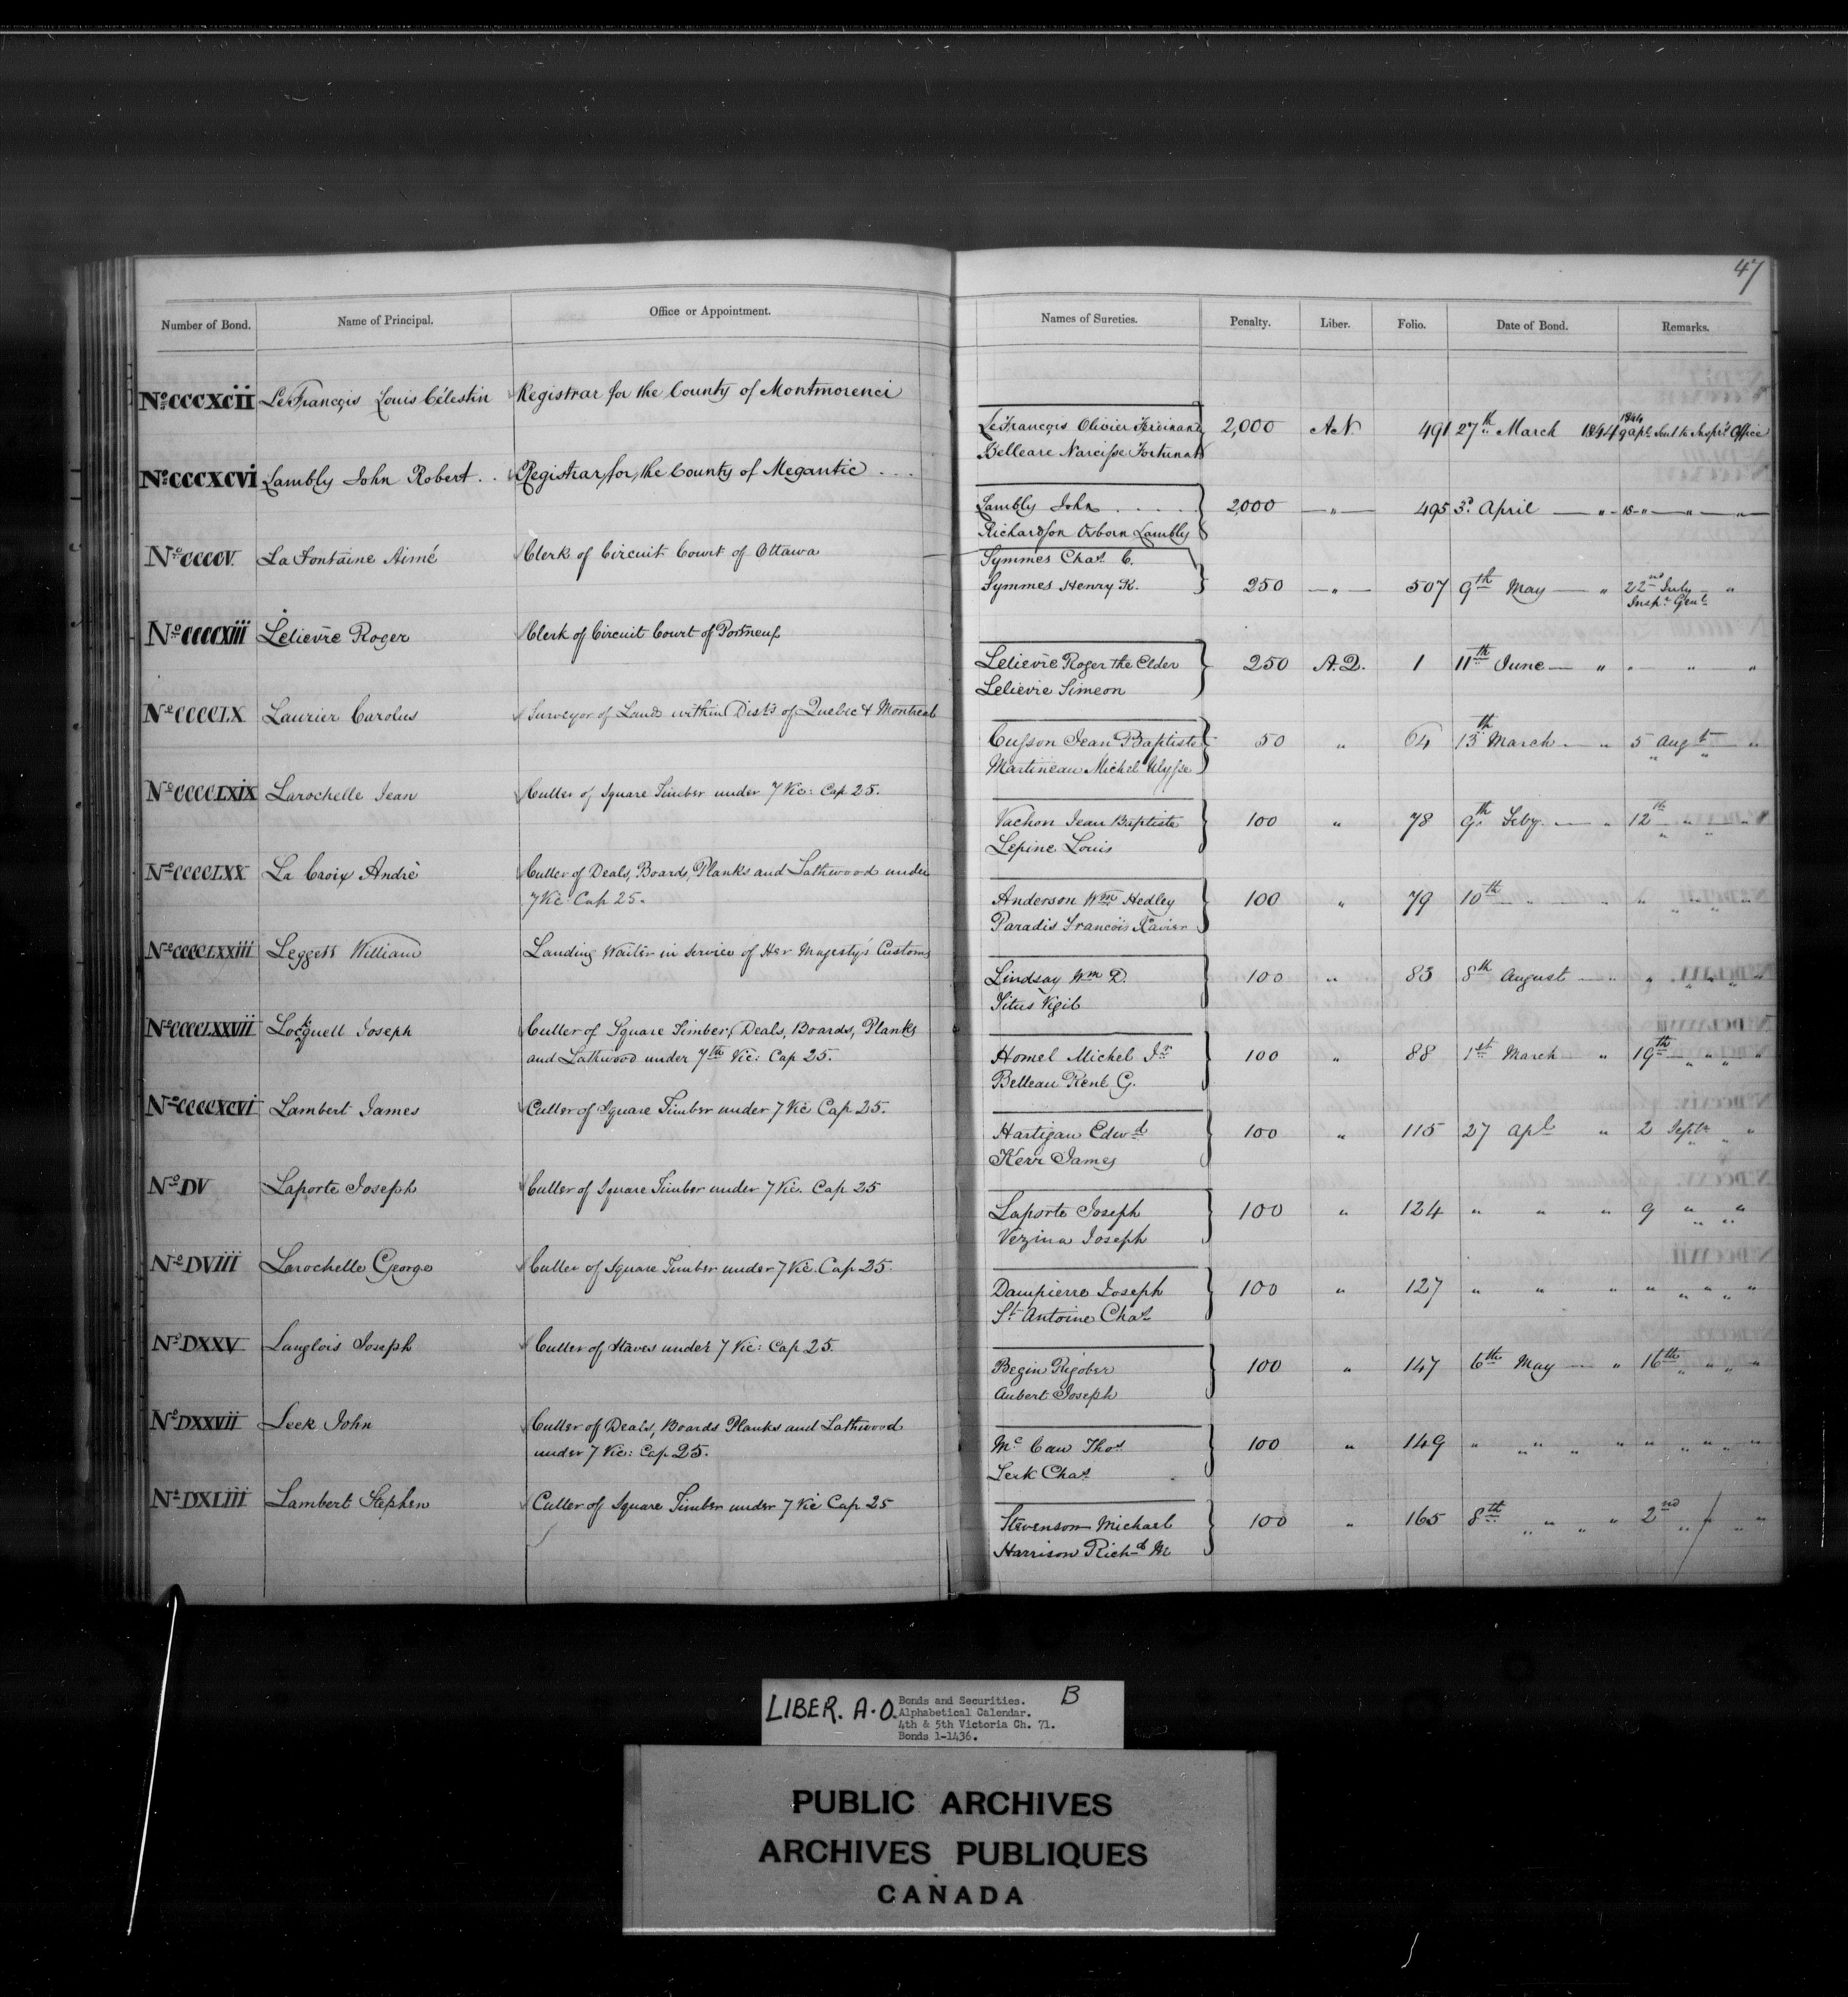 47
Number of Bond. Name of Principal. Office or Appointment. Names of Sureties. Penalty. Liber. Folio. Date of Bond. Remarks.
No CCCXCii LeFrançois Louis Célestin Registrar for the County of Montmorenci
LeFrançois Olivier Ferdinand 2,000 A.N. 491 27th March 1844 1844 9 Apl. Sent to Inspr's Office
Belleare Narcisse Fortunat
No CCCXCVi Lambly John Robert . . Registrar for the County of Megantic . . .
Lambly John . . . . 2,000 — " — 495 3d April — " — 18 — " — " — "
Richardson Osborn Lambly
No CCCCV. La Fontaine Aimé Clerk of Circuit Court of Ottawa
Symmes Chas C.
Symmes Henry K. 250 — " — 507 9th May — " 22nd July "
Inspr Genl
No CCCCXiii Lelievre Roger Clerk of Circuit Court of Portneuf
Lelievre Roger the Elder 250 A.Q. 1 11th June — " " " "
Lelievre Simeon
No CCCCLX Laurier Carolus Surveyor of Land within Dists of Quebec & Montreal
Cusson Jean Baptiste 50 " 64 13th March — " 5 Augt "
Martineau Michel Ulysse " "
No CCCCLXiX Larochelle Jean Culler of Square Timber under 7 Vic: Cap 25.
Vachon Jean Baptiste 100 " 78 9th Feby. — " 12th " " "
Lepine Louis
No CCCCLXX La Croix Andrè Culler of Deals, Boards, Planks and Lathwood under
7 Vic Cap 25.
Anderson Wm Hedley 100 " 79 10th " " " " " "
Paradis Francois Xavier
No CCCCLXXiii Leggett William Landing Waiter in service of Her Majesty's Customs
Lindsay Wm D. 100 " 83 8th August — " " " " "
Titus Vigil
No CCCCLXXVii Lockquell Joseph Culler of Square Timber, Deals, Boards, Planks
and Lathwood under 7th Vic: Cap 25.
Hamel Michel Jr 100 " 88 1st March " 19th " " "
Belleau René G.
No CCCCXCVi Lambert James Culler of Square Timber under 7 Vic Cap 25.
Hartigan Edwd 100 " 115 27 Apl " 2 Septr " "
Kerr James
No DV Laporte Joseph Culler of Square Timber under 7 Vic. Cap 25
Laporte Joseph 100 " 124 " " " 9 " " "
Vezina Joseph
No DViii Larochelle George Culler of Square Timber under 7 Vic. Cap 25.
Dampierre Joseph 100 " 127 " " " " " " "
St Antoine Chas
No DXXV Langlois Joseph Culler of Staves under 7 Vic: Cap 25.
Begin Rigober 100 " 147 6th May — " 16th " " "
Aubert Joseph
No DXXVii Leek John Culler of Deals, Boards Planks and Lathwood
under 7 Vic: Cap 25.
Mc Caw Thos 100 " 149 " " " " " " " "
Leek Chas
No DXLiii Lambert Stephen Culler of Square Timber under 7 Vic Cap 25
Stevenson Michael 100 " 165 8th " " " 2nd " " "
Harrison Richd M
LIBER. A-O. Bonds and Securities. B
Alphabetical Calendar.
4th & 5th Victoria Ch. 71.
Bonds 1-1436.
PUBLIC ARCHIVES
ARCHIVES PUBLIQUES
CANADA